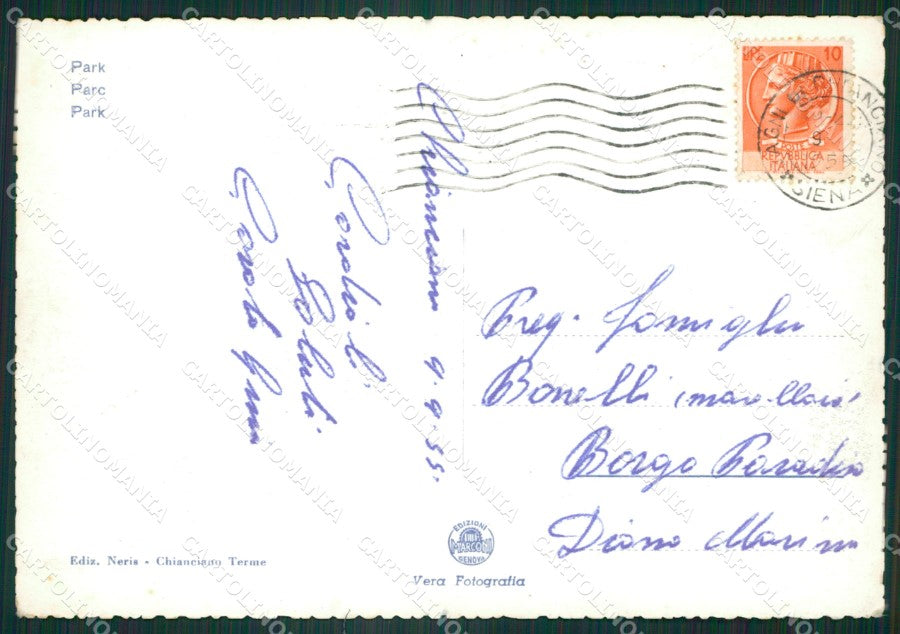 Park
Parc
Park
Chianciano 9.9.55.
Cordiali
Saluti
LIRE 10
POSTE
REPVBBLICA
ITALIANA
SIENA
Preg. Famiglia
Bonelli
Borgo Paradiso
Diano Marina
EDIZIONI
MARCONI
GENOVA
Ediz. Neris - Chianciano Terme
Vera Fotografia
CARTOLINOMANIA